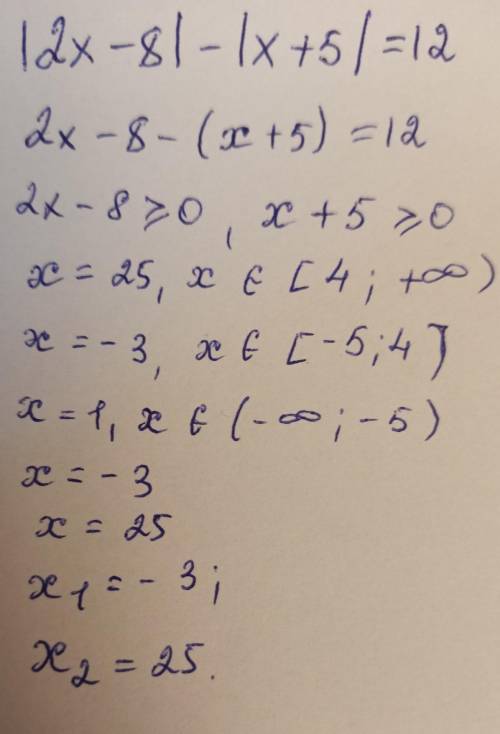 |2x - 8| - |x + 5| = 12
2x - 8 - (x + 5) = 12
2x - 8 ⩾ 0, x + 5 ⩾ 0
x = 25, x ∈ [4; +∞)
x = - 3, x ∈ [-5; 4]
x = 1, x ∈ (-∞; -5)
x = - 3
x = 25
x₁ = - 3;
x₂ = 25.